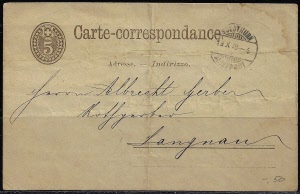 5
Carte-correspondance
Adresse. — Indirizzo.
Herrn Albrecht Gerber
Rothgerber
Langnau
-.50